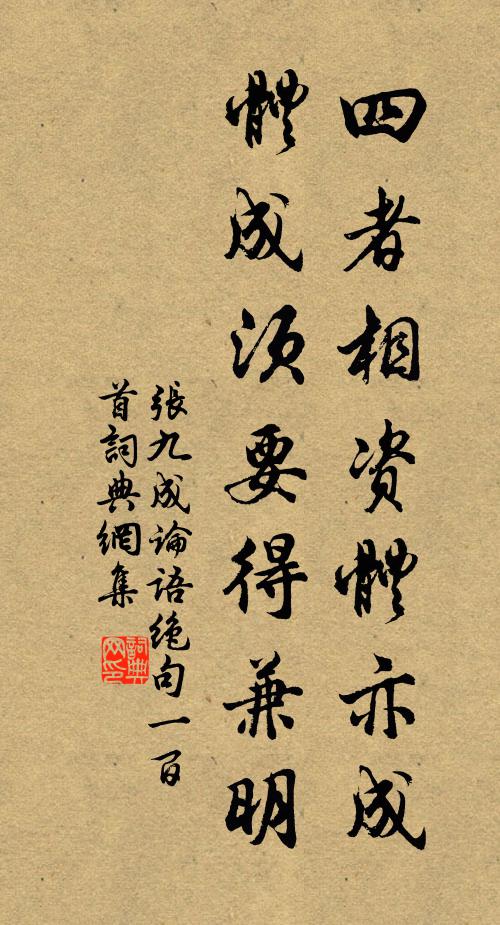 四者相资體亦成
體成须要得兼明
張九成論語绝句一百
首詞典網集
詞典
网印